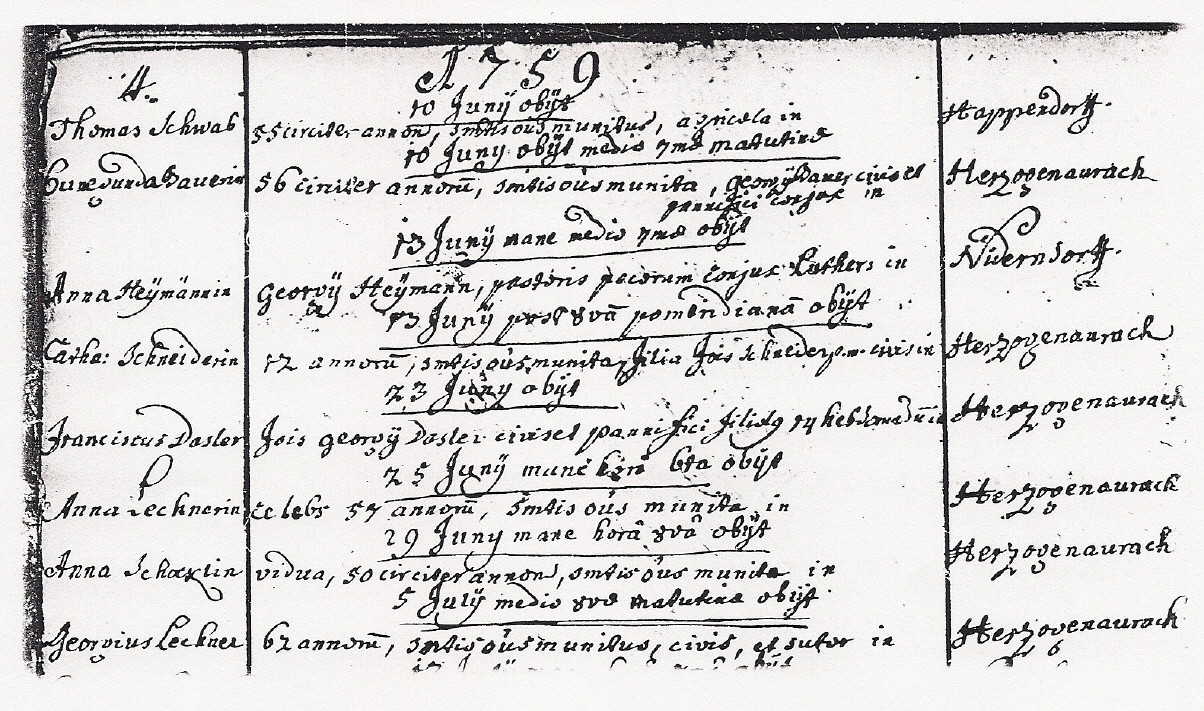 4.
A 1759
10 Junÿ obijt
Thomas Schwab 55 circiter annorū, smtis oūs munitus, agricola in Happendorff.
10 Junÿ obijt medio 7mæ matutinæ
Cunegunda Bauerin 56 circiter annorū, smtis oūs munita, Georgij Bauer civis et Herzogenaurach
pannifici conjux in
13 Junÿ mane medio 7mæ obijt
Anna Heÿmännin Georgÿ Heÿmann, pastoris pecorum conjux Luthers in Nüerndorff.
13 Junÿ post 8vā pomeridianā obijt
Catha: Schneiderin 12 annorū, smtis oūs munita, filia Jois Schneider p.m. civis in Herzogenaurach
23 Junÿ obijt
Franciscus Dasler Jois georgÿ Dasler civis et pannifici filiolg 14 hebdomadū in Herzogenaurach
25 Junÿ mane hora 6ta obijt
Anna Lechnerin celebs 57 annorū, smtis oūs munita in Herzogenaurach
29 Juny mane horâ 8vâ obijt
Anna Schæxlin vidua, 50 circiter annorū, smtis oūs munita in Herzogenaurach
5 Julÿ medio 8væ matutinæ obijt
Georgius Lechner 62 annorū, smtis oūs munitus, civis, et sutor in Herzogenaurach